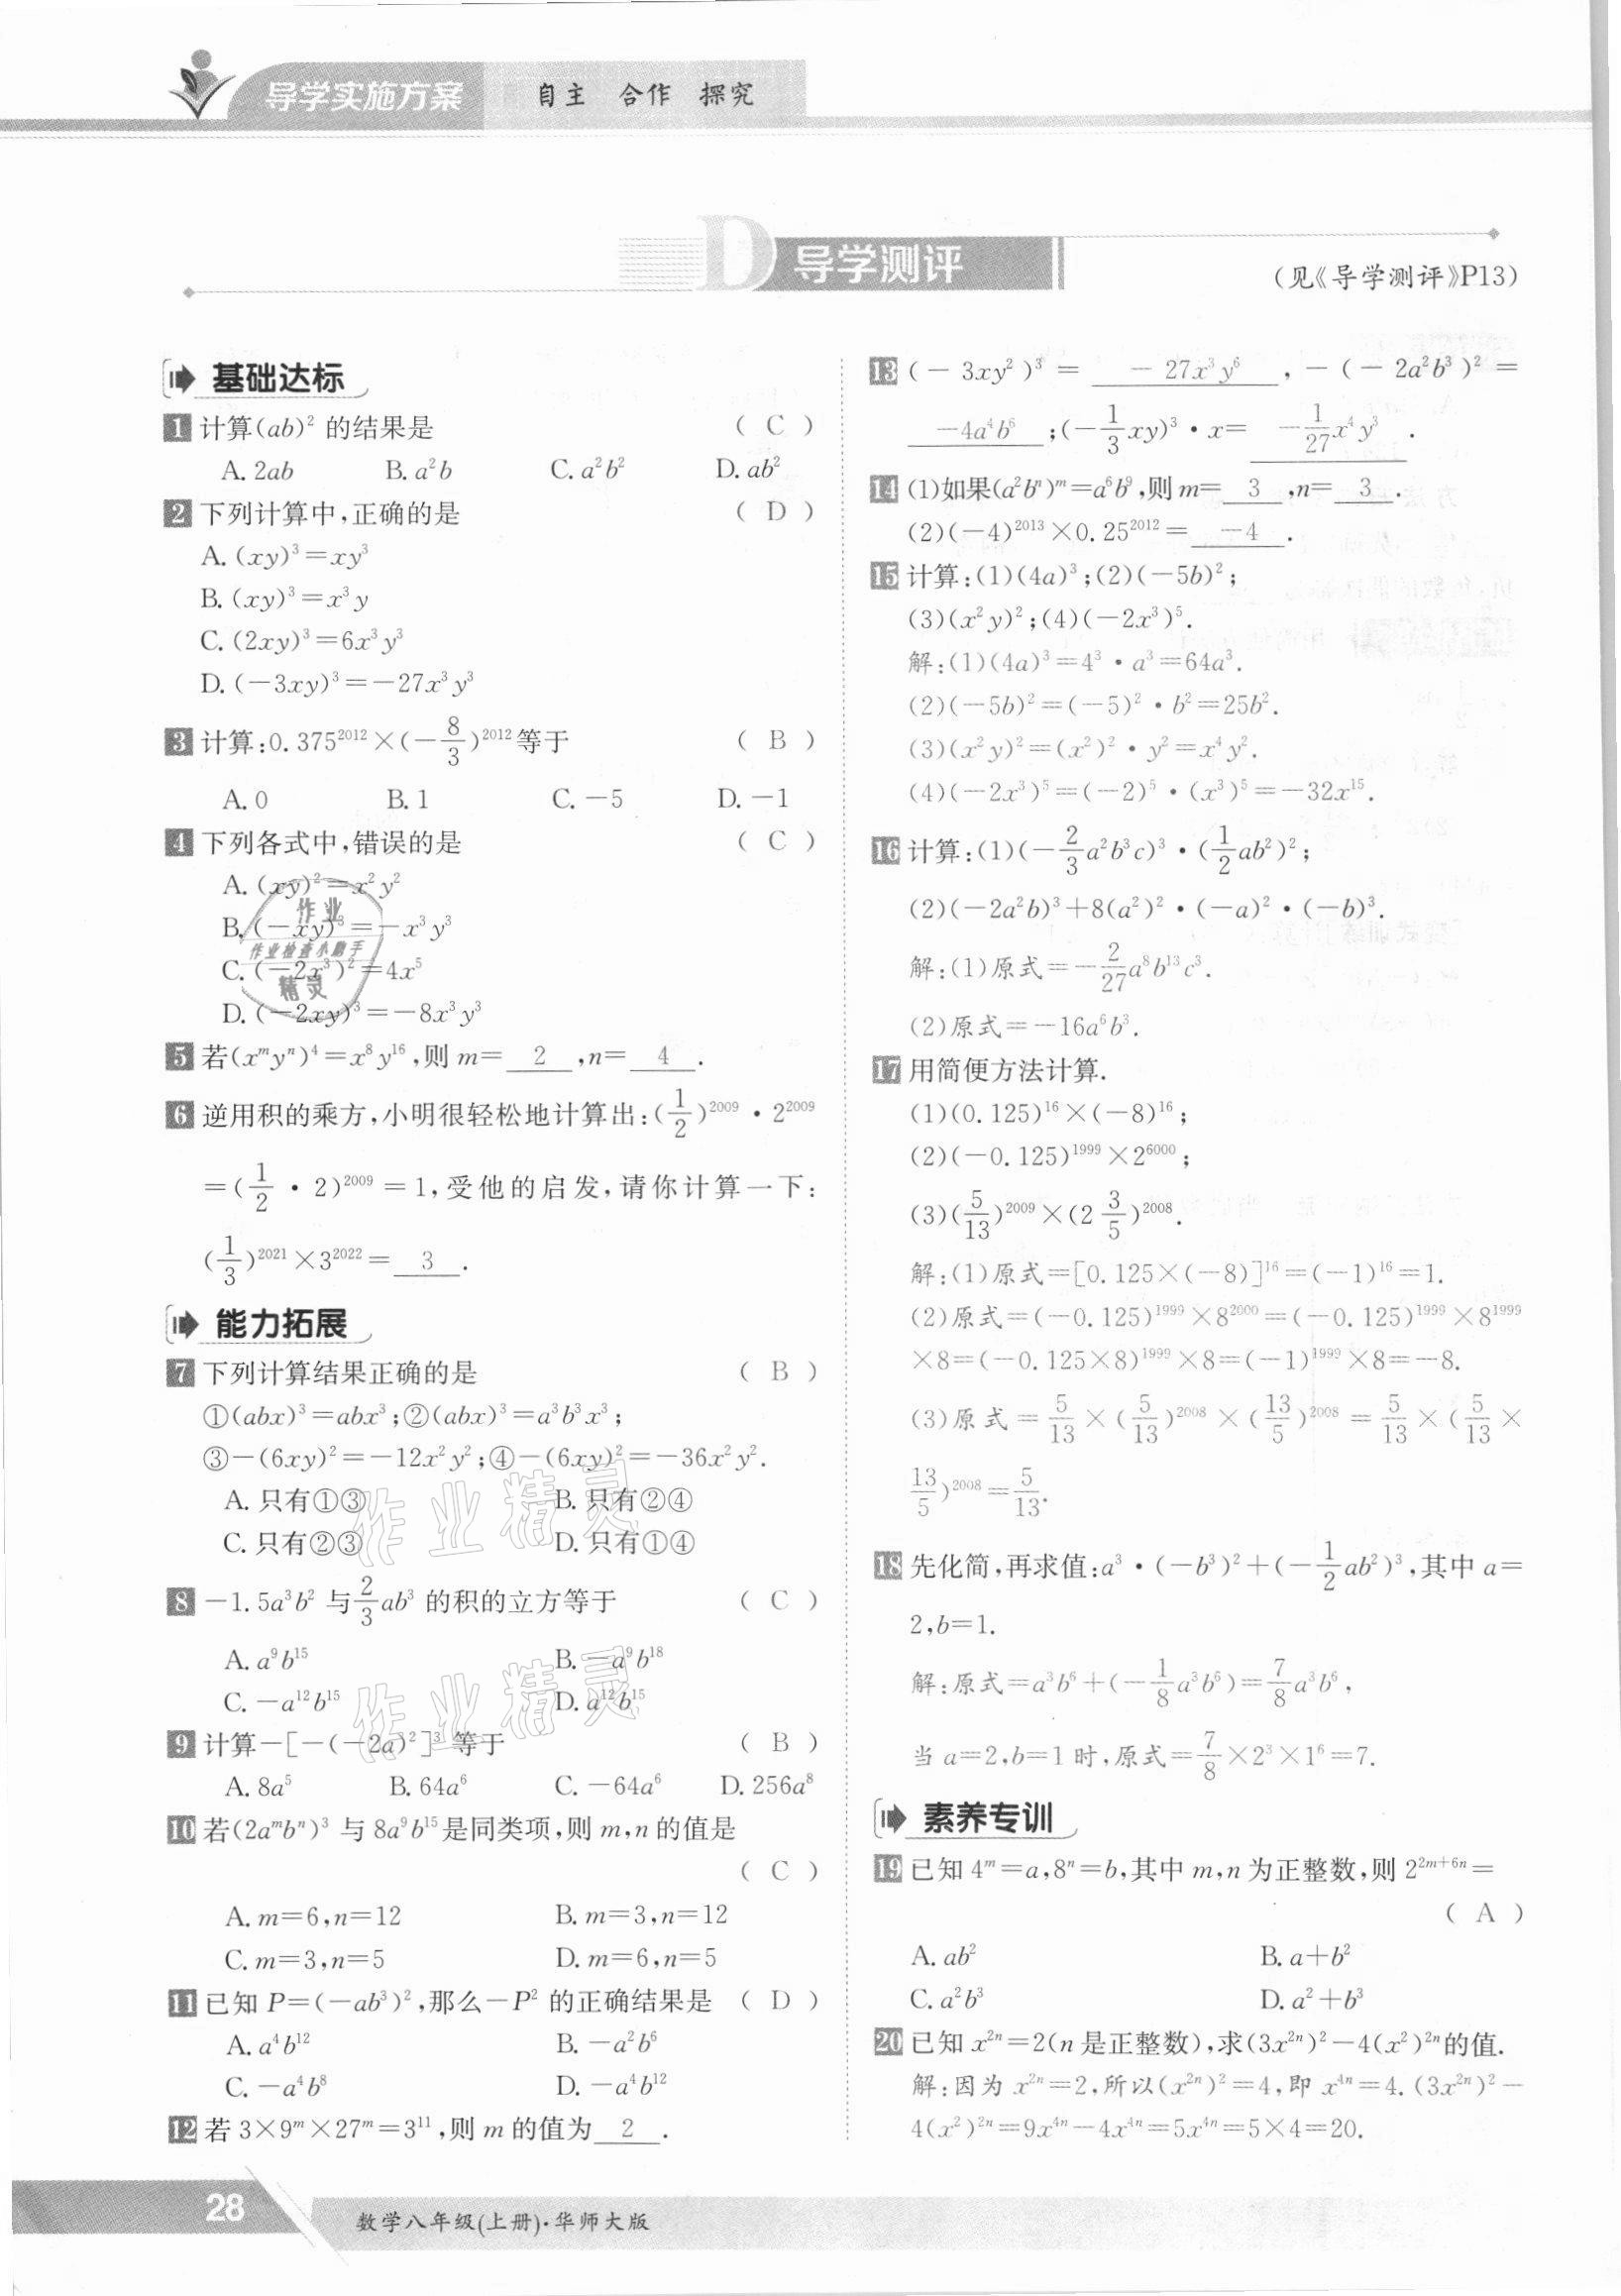 导学实施方案 自主 合作 探究
D 导学测评
(见《导学测评》P13)
基础达标
1 计算(ab)² 的结果是 ( C )
A. 2ab B. a²b C. a²b² D. ab²
2 下列计算中,正确的是 ( D )
A. (xy)³=xy³
B. (xy)³=x³y
C. (2xy)³=6x³y³
D. (-3xy)³=-27x³y³
3 计算:0.375²⁰¹²×(-8/3)²⁰¹²等于 ( B )
A. 0 B. 1 C. -5 D. -1
4 下列各式中,错误的是 ( C )
A. (xy)²=x²y²
B. (-xy)³=-x³y³
C. (-2x³)²=4x⁵
D. (-2xy)³=-8x³y³
5 若(xᵐyⁿ)⁴=x⁸y¹⁶,则 m= 2 ,n= 4 .
6 逆用积的乘方,小明很轻松地计算出:(1/2)²⁰⁰⁹·2²⁰⁰⁹
=(1/2·2)²⁰⁰⁹=1,受他的启发,请你计算一下:
(1/3)²⁰²¹×3²⁰²²= 3 .
能力拓展
7 下列计算结果正确的是 ( B )
①(abx)³=abx³;②(abx)³=a³b³x³;
③-(6xy)²=-12x²y²;④-(6xy)²=-36x²y².
A. 只有①③ B. 只有②④
C. 只有②③ D. 只有①④
8 -1.5a³b² 与2/3ab³ 的积的立方等于 ( C )
A. a⁹b¹⁵ B. -a⁹b¹⁸
C. -a¹²b¹⁵ D. a¹²b¹⁵
9 计算-[-(-2a)²]³ 等于 ( B )
A. 8a⁵ B. 64a⁶ C. -64a⁶ D. 256a⁸
10 若(2aᵐbⁿ)³ 与 8a⁹b¹⁵是同类项,则 m,n 的值是
( C )
A. m=6,n=12 B. m=3,n=12
C. m=3,n=5 D. m=6,n=5
11 已知 P=(-ab³)²,那么-P² 的正确结果是 ( D )
A. a⁴b¹² B. -a²b⁶
C. -a⁴b⁸ D. -a⁴b¹²
12 若 3×9ᵐ×27ᵐ=3¹¹,则 m 的值为 2 .
13 (-3xy²)³= -27x³y⁶ ,-(-2a²b³)²=
-4a⁴b⁶ ;(-1/3xy)³·x= -1/27x⁴y³ .
14 (1)如果(a²bⁿ)ᵐ=a⁶b⁹,则 m= 3 ,n= 3 .
(2)(-4)²⁰¹³×0.25²⁰¹²= -4 .
15 计算:(1)(4a)³;(2)(-5b)²;
(3)(x²y)²;(4)(-2x³)⁵.
解:(1)(4a)³=4³·a³=64a³.
(2)(-5b)²=(-5)²·b²=25b².
(3)(x²y)²=(x²)²·y²=x⁴y².
(4)(-2x³)⁵=(-2)⁵·(x³)⁵=-32x¹⁵.
16 计算:(1)(-2/3a²b³c)³·(1/2ab²)²;
(2)(-2a²b)³+8(a²)²·(-a)²·(-b)³.
解:(1)原式=-2/27a⁸b¹³c³.
(2)原式=-16a⁶b³.
17 用简便方法计算.
(1)(0.125)¹⁶×(-8)¹⁶;
(2)(-0.125)¹⁹⁹⁹×2⁶⁰⁰⁰;
(3)(5/13)²⁰⁰⁹×(2 3/5)²⁰⁰⁸.
解:(1)原式=[0.125×(-8)]¹⁶=(-1)¹⁶=1.
(2)原式=(-0.125)¹⁹⁹⁹×8²⁰⁰⁰=(-0.125)¹⁹⁹⁹×8¹⁹⁹⁹
×8=(-0.125×8)¹⁹⁹⁹×8=(-1)¹⁹⁹⁹×8=-8.
(3)原式=5/13×(5/13)²⁰⁰⁸×(13/5)²⁰⁰⁸=5/13×(5/13×
13/5)²⁰⁰⁸=5/13.
18 先化简,再求值:a³·(-b³)²+(-1/2ab²)³,其中 a=
2,b=1.
解:原式=a³b⁶+(-1/8a³b⁶)=7/8a³b⁶,
当 a=2,b=1 时,原式=7/8×2³×1⁶=7.
素养专训
19 已知 4ᵐ=a,8ⁿ=b,其中 m,n 为正整数,则 2²ᵐ⁺⁶ⁿ=
( A )
A. ab² B. a+b²
C. a²b³ D. a²+b³
20 已知 x²ⁿ=2(n 是正整数),求(3x²ⁿ)²-4(x²)²ⁿ的值.
解:因为 x²ⁿ=2,所以(x²ⁿ)²=4,即 x⁴ⁿ=4.(3x²ⁿ)²-
4(x²)²ⁿ=9x⁴ⁿ-4x⁴ⁿ=5x⁴ⁿ=5×4=20.
作业
作业检查小助手
精灵
作业精灵
作业精灵
28
数学八年级(上册)·华师大版